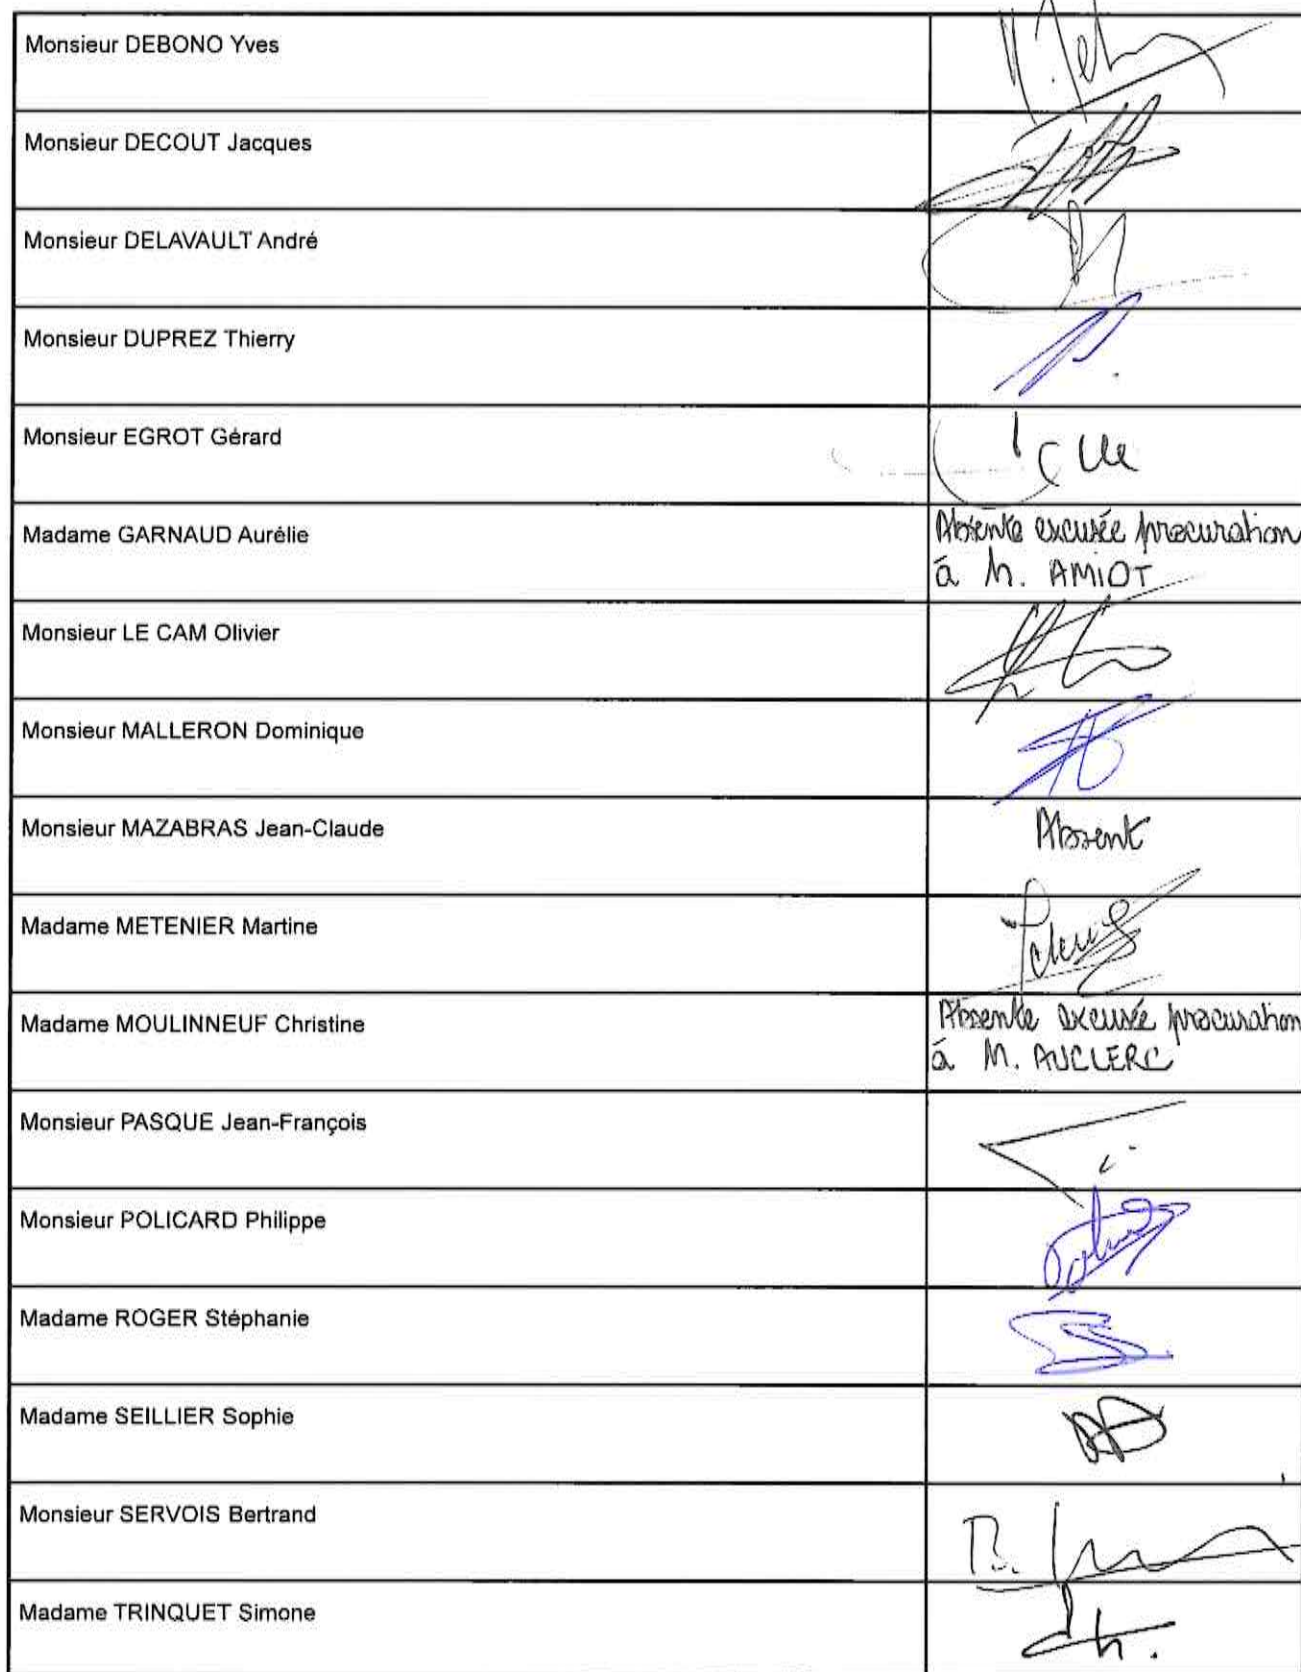 Monsieur DEBONO Yves
Monsieur DECOUT Jacques
Monsieur DELAVAULT André
Monsieur DUPREZ Thierry
Monsieur EGROT Gérard
Madame GARNAUD Aurélie
Absente excusée procuration
à M. AMIOT
Monsieur LE CAM Olivier
Monsieur MALLERON Dominique
Monsieur MAZABRAS Jean-Claude
Absent
Madame METENIER Martine
Madame MOULINNEUF Christine
Absente excusée procuration
à M. AUCLERC
Monsieur PASQUE Jean-François
Monsieur POLICARD Philippe
Madame ROGER Stéphanie
Madame SEILLIER Sophie
Monsieur SERVOIS Bertrand
Madame TRINQUET Simone